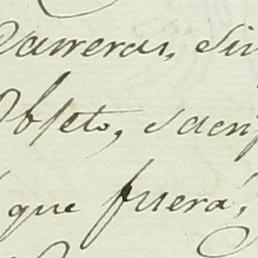 Carreras, sin
Obseto, sacri
que fuera,